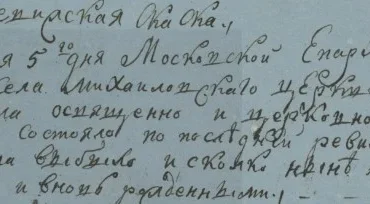 ревизская скаска,
я 5го дня Московской Епар
села михаиловскаго церкви
ла освященно и церковно
состояло по последней реви
ла выбыло и сколко нынѣ
и вновь рожденными,